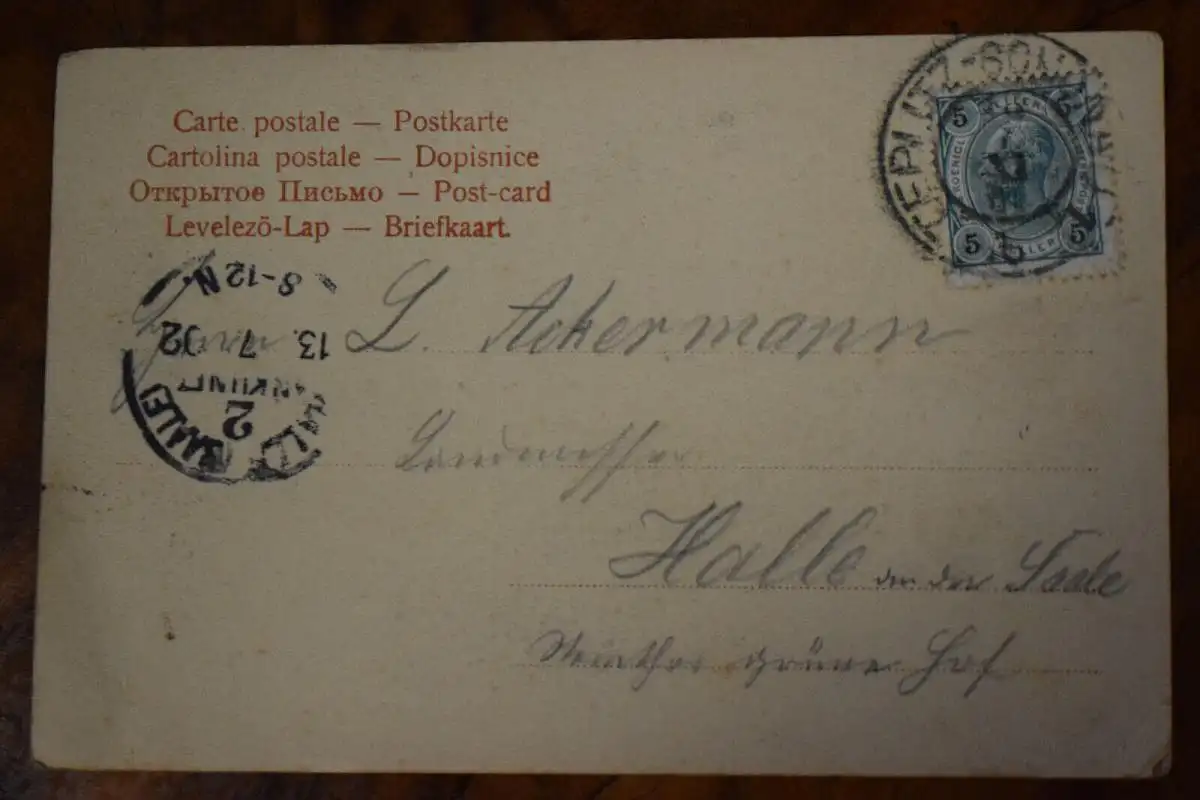 Carte postale — Postkarte
Cartolina postale — Dopisnice
Открытое Письмо — Post-card
Levelező-Lap — Briefkaart.
TEPLITZ-SCHÖNAU
5 5
5 5
HELLER
8-12 N.
13. 7 02
ANKUNFT
2
HALLE (SAALE)
Herrn L. Ackermann
Landmesser
Halle an der Saale
grüner Hof